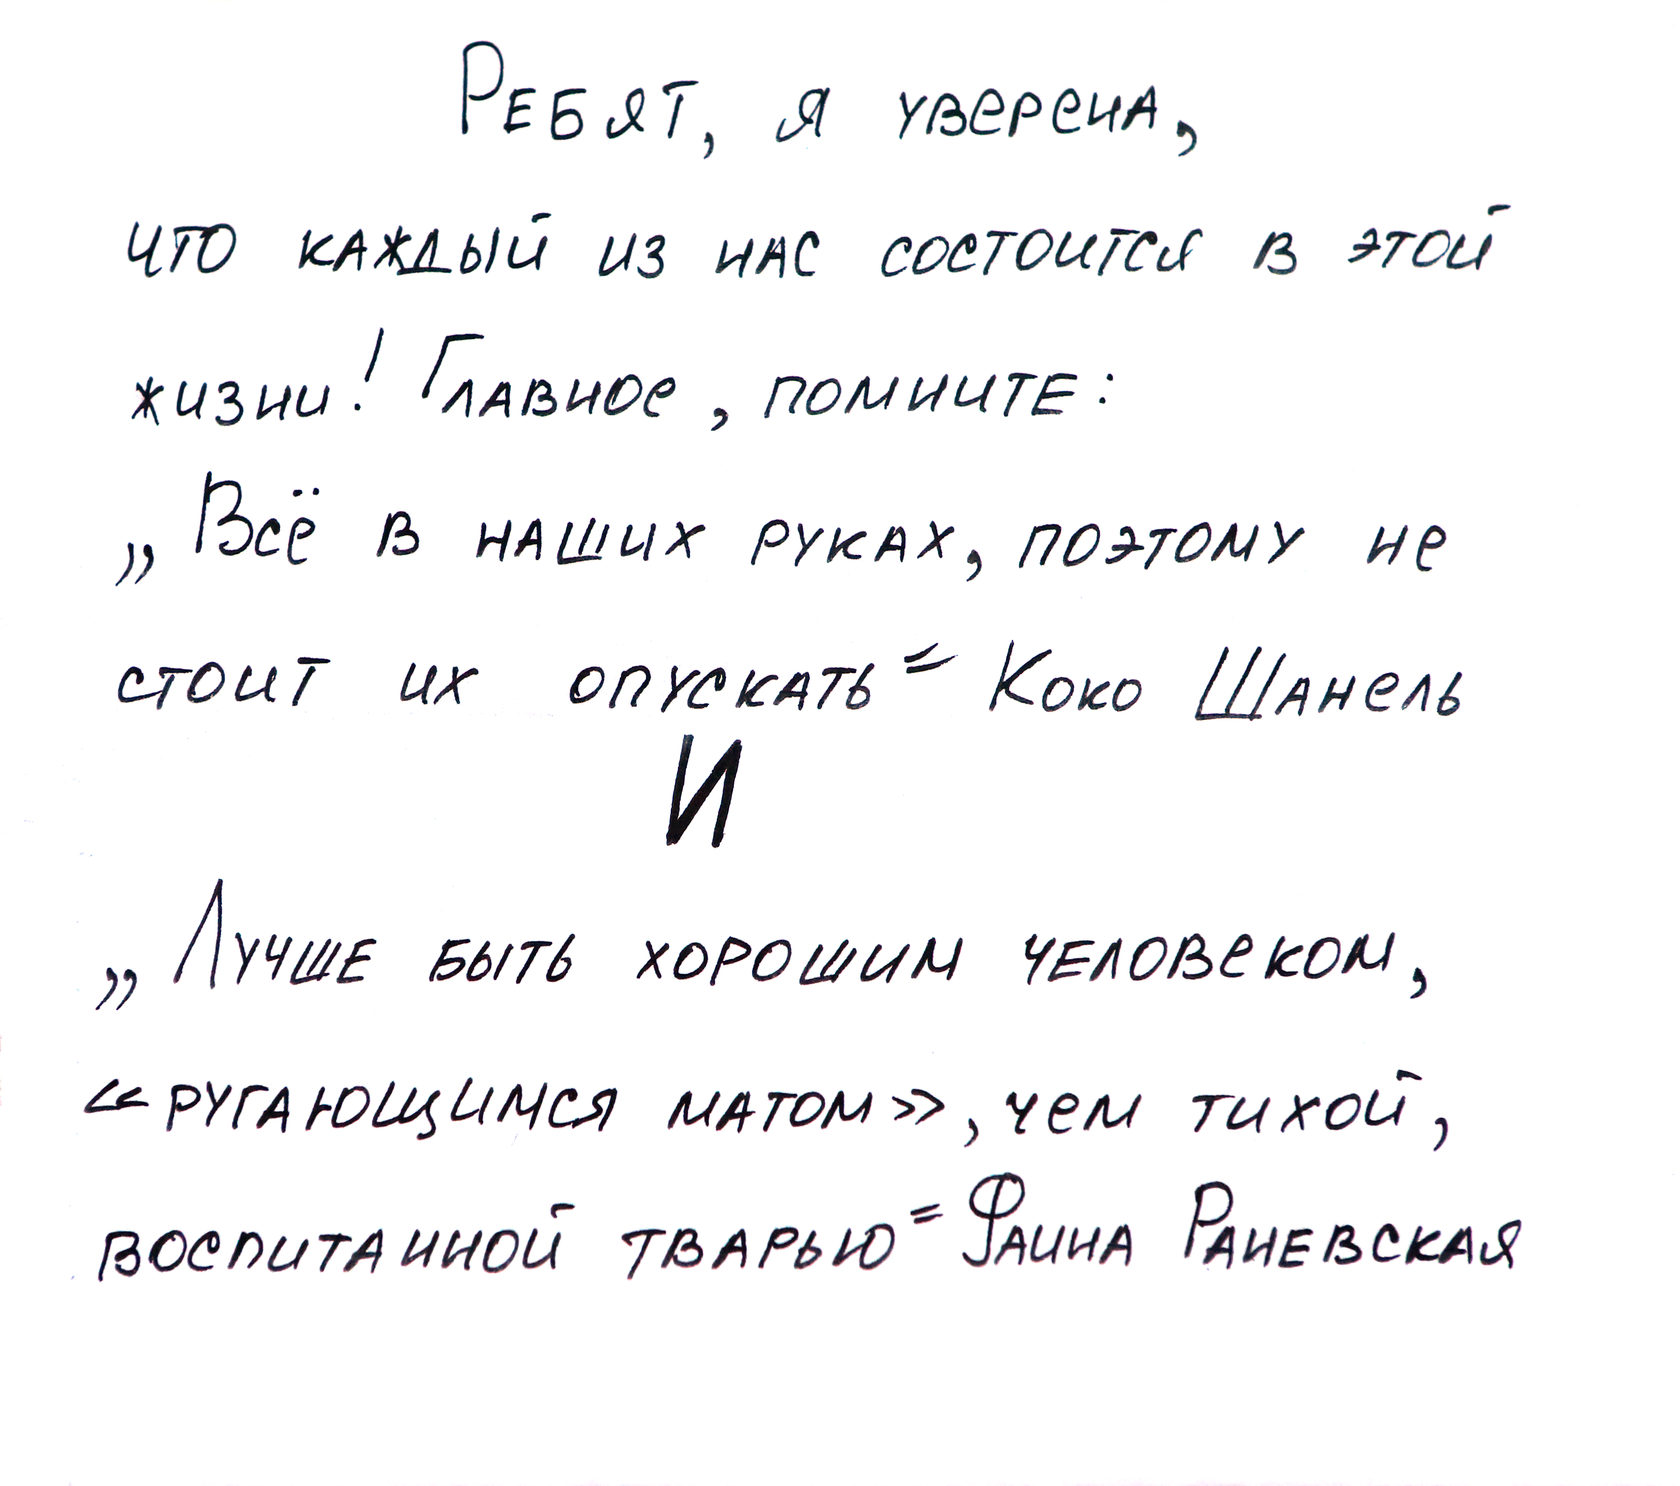 Ребят, я уверена,
что каждый из нас состоится в этой
жизни! Главное, помните:
„Всё в наших руках, поэтому не
стоит их опускать“ Коко Шанель
И
„Лучше быть хорошим человеком,
«ругающимся матом», чем тихой,
воспитанной тварью“ Фаина Раневская